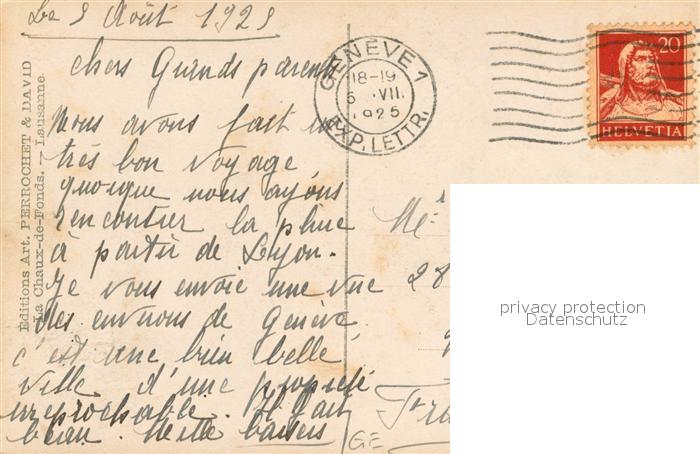 Le 5 Août 1925
Chers Grands parents
Nous avons fait un
très bon voyage
quoique nous ayons
rencontrer la pluie
à partir de Lyon.
Je vous envoie une vue
des environs de Genève
c'est une bien belle
ville d'une propreté
irréprochable. Il fait
beau. Mille baisers
Editions Art. PERROCHET & DAVID
La Chaux-de-Fonds. — Lausanne.
GENÈVE 1
18-19
5 VII.
1925
EXP. LETTR.
20
HELVETIA
28
GE
privacy protection
Datenschutz